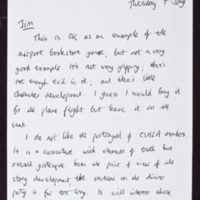 Tuesday 7 July
Jim
This is OK as an example of the
airport bookstore genre, but not a very
good example. It's not very gripping; there's
not enough evil in it; and there's little
character development. I guess I would buy it
for the plane flight but leave it on the
seat.
I do not like the portrayal of members
is a caricature with elements of truth but
overall grotesque from the point of view of the
story development the section on the dinner
party is far too long. It will interest those